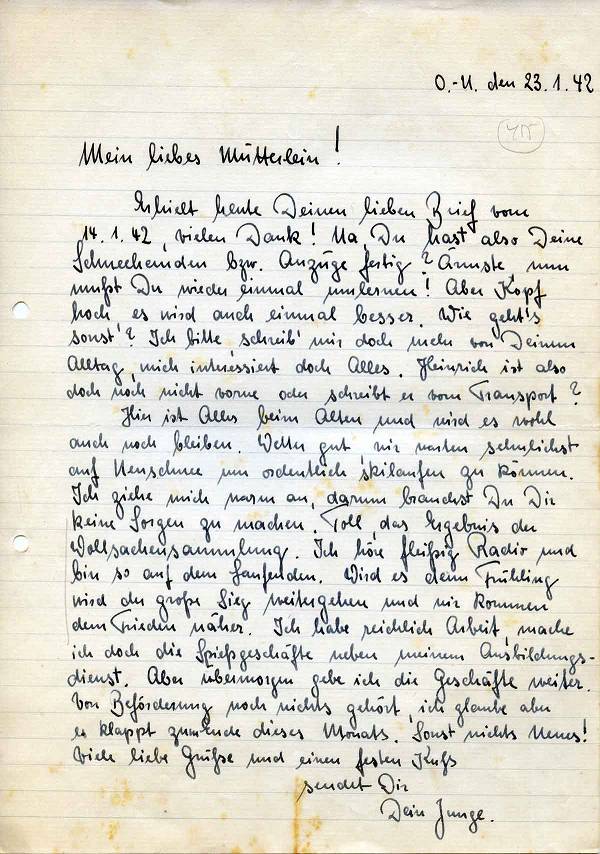 O.-U. den 23.1.42
Mein liebes Mütterlein!
Erhielt heute Deinen lieben Brief vom
14.1.42, vielen Dank! Na, Du hast also Deine
Schneehemden bzw. Anzüge fertig? Ärmste, nun
mußt Du wieder einmal umlernen! Aber Kopf
hoch, es wird auch einmal besser. Wie geht's
sonst? Ich bitte, schreib' mir doch mehr von Deinem
Alltag, mich interessiert doch Alles. Heinrich ist also
doch noch nicht vorne oder schreibt er vom Transport?
Hier ist Alles beim Alten und wird es wohl
auch noch bleiben. Wetter gut, wir warten sehnlichst
auf Neuschnee um ordentlich skilaufen zu können.
Ich ziehe mich warm an, darum brauchst Du Dir
keine Sorgen zu machen. Toll, das Ergebnis der
Wollsachensammlung. Ich höre fleißig Radio und
bin so auf dem Laufenden. Wird es dem Frühling
wird der große Sieg weitergehen und wir kommen
dem Frieden näher. Ich habe reichlich Arbeit, mache
ich doch die Spießgeschäfte neben meinem Ausbildungs-
dienst. Aber übermorgen gebe ich die Geschäfte weiter.
Von Beförderung noch nichts gehört, ich glaube aber
es klappt zum Ende dieses Monats. Sonst nichts Neues!
Viele liebe Grüße und einen festen Kuß
sendet Dir
Dein Junge.